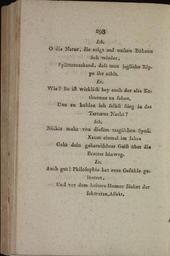 298
Ich.
O die Natur, die zeigt auf unsern Bühnen
sich wieder,
Splitternackend, daß man jegliche Rip-
pe ihr zählt.
Er.
Wie? So ist wirklich bey euch der alte Ko-
thurnus zu sehen,
Den zu hohlen ich selbst stieg in des
Tartarus Nacht?
Ich.
Nichts mehr von diesem tragischen Spuk.
Kaum einmal im Jahre
Geht dein geharnischter Geist über die
Bretter hinweg.
Er.
Auch gut! Philosophie hat eure Gefühle ge-
läutert,
Und vor dem heitern Humor fliehet der
schwarze Affekt.